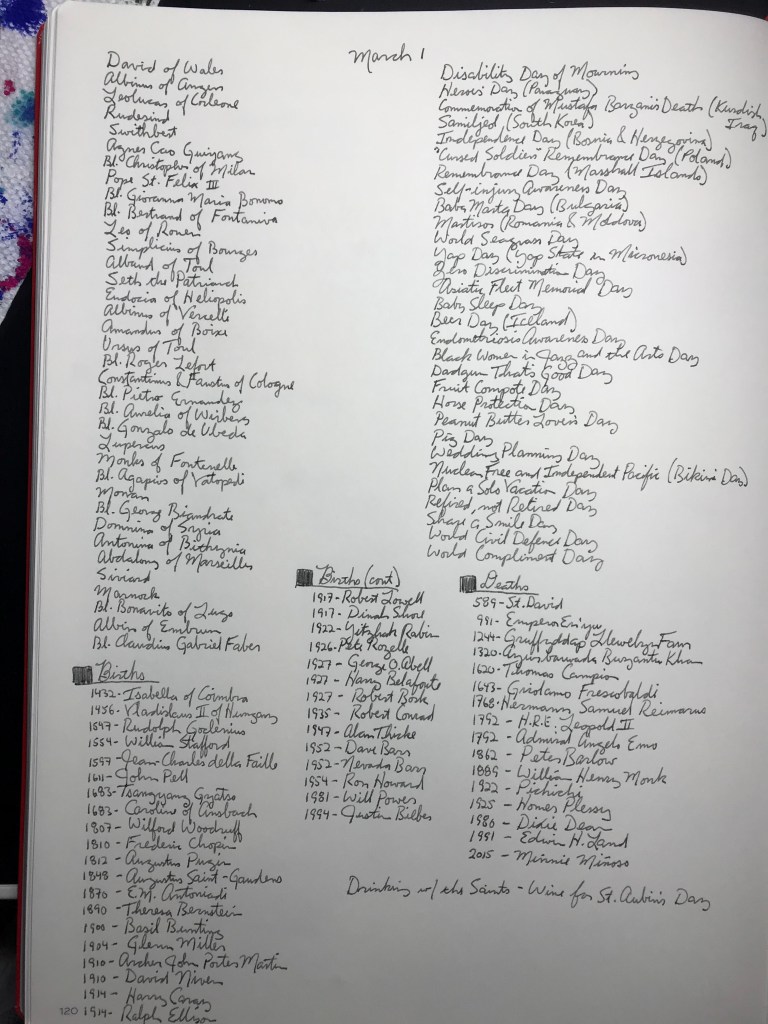 March 1
David of Wales
Albinus of Angers
Leolucas of Corleone
Rudesind
Swithbert
Agnes Cao Guiyang
Bl. Christopher of Milan
Pope St. Felix III
Bl. Giovanna Maria Bonomo
Bl. Bertrand of Fontaniva
Leo of Rouen
Simplicius of Bourges
Alband of Toul
Seth the Patriarch
Eudocia of Heliopolis
Albinus of Vercelle
Amandus of Boixe
Ursus of Toul
Bl. Roger Lefort
Constantinus & Faustus of Cologne
Bl. Pietro Ernandez
Bl. Aurelia of Weibers
Bl. Gonzalo de Ubeda
Lupercus
Monks of Fontenelle
Bl. Agapius of Vatopedi
Monan
Bl. Georg Biandrate
Domnina of Syria
Antonina of Bithynia
Abdalong of Marseilles
Siviard
Marnock
Bl. Bonavito of Lugo
Albin of Embrun
Bl. Claudius Gabriel Faber
Births
1432- Isabella of Coimbra
1456- Vladislaus II of Hungary
1547- Rudolph Goclenius
1554- William Stafford
1597- Jean-Charles della Faille
1611- John Pell
1683- Tsangyang Gyatso
1683- Caroline of Ansbach
1807- Wilford Woodruff
1810- Frederic Chopin
1812- Augustus Pugin
1848- Augustus Saint-Gaudens
1870- E.M. Antoniadi
1890- Theresa Bernstein
1900- Basil Bunting
1904- Glenn Miller
1910- Archer John Porter Martin
1910- David Niven
1914- Harry Caray
1914- Ralph Ellison
120
Disability Day of Mourning
Heroes' Day (Paraguay)
Commemoration of Mustafa Barzani's Death (Kurdish
Iraq)
Samiljeol (South Korea)
Independence Day (Bosnia & Herzegovina)
"Cursed Soldiers" Remembrance Day (Poland)
Remembrance Day (Marshall Islands)
Self-injury Awareness Day
Baba Marta Day (Bulgaria)
Martisor (Romania & Moldova)
World Seagrass Day
Yap Day (Yap State in Micronesia)
Zero Discrimination Day
Asiatic Fleet Memorial Day
Baby Sleep Day
Beer Day (Iceland)
Endometriosis Awareness Day
Black Women in Jazz and the Arts Day
Dadgum That's Good Day
Fruit Compote Day
Horse Protection Day
Peanut Butter Lover's Day
Pig Day
Wedding Planning Day
Nuclear Free and Independent Pacific (Bikini Day)
Plan a Solo Vacation Day
Refired, not Retired Day
Share a Smile Day
World Civil Defence Day
World Compliment Day
Births (cont)
1917- Robert Lowell
1917- Dinah Shore
1922- Yitzhak Rabin
1926- Pete Rozelle
1927- George O. Abell
1927- Harry Belafonte
1927- Robert Bork
1935- Robert Conrad
1947- Alan Thicke
1952- Dave Barr
1952- Nevada Barr
1954- Ron Howard
1981- Will Power
1994- Justin Bieber
Deaths
589- St. David
991- Emperor En'yu
1244- Gruffydd ap Llewelyn Fawr
1320- Ayurbarwada Buyantu Khan
1620- Thomas Campion
1643- Girolamo Frescobaldi
1768- Hermann Samuel Reimarus
1792- H.R.E. Leopold II
1792- Admiral Angelo Emo
1862- Peter Barlow
1889- William Henry Monk
1922- Pichichi
1925- Homer Plessy
1980- Dixie Dean
1991- Edwin H. Land
2015- Minnie Miñoso
Drinking w/ the Saints - Wine for St. Aubin's Day